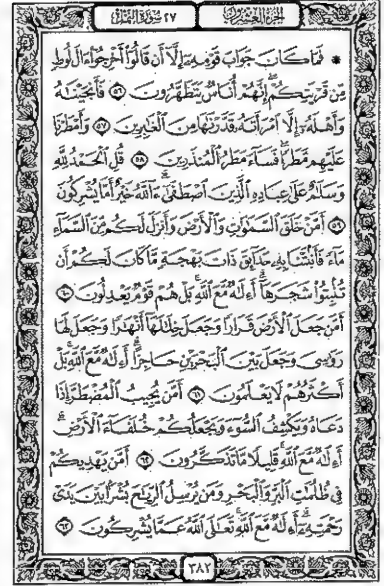 الجزء العشرون ٢٧ سورة النمل
۞ فَمَا كَانَ جَوَابَ قَوْمِهِۦٓ إِلَّآ أَن قَالُوٓا۟ أَخْرِجُوٓا۟ ءَالَ لُوطٍ
مِّن قَرْيَتِكُمْ ۖ إِنَّهُمْ أُنَاسٌ يَتَطَهَّرُونَ ٥٦ فَأَنجَيْنَـٰهُ
وَأَهْلَهُۥٓ إِلَّا ٱمْرَأَتَهُۥ قَدَّرْنَـٰهَا مِنَ ٱلْغَـٰبِرِينَ ٥٧ وَأَمْطَرْنَا
عَلَيْهِم مَّطَرًا ۖ فَسَآءَ مَطَرُ ٱلْمُنذَرِينَ ٥٨ قُلِ ٱلْحَمْدُ لِلَّهِ
وَسَلَـٰمٌ عَلَىٰ عِبَادِهِ ٱلَّذِينَ ٱصْطَفَىٰٓ ۗ ءَآللَّهُ خَيْرٌ أَمَّا يُشْرِكُونَ
٥٩ أَمَّنْ خَلَقَ ٱلسَّمَـٰوَٰتِ وَٱلْأَرْضَ وَأَنزَلَ لَكُم مِّنَ ٱلسَّمَآءِ
مَآءً فَأَنۢبَتْنَا بِهِۦ حَدَآئِقَ ذَاتَ بَهْجَةٍ مَّا كَانَ لَكُمْ أَن
تُنۢبِتُوا۟ شَجَرَهَآ ۗ أَءِلَـٰهٌ مَّعَ ٱللَّهِ ۚ بَلْ هُمْ قَوْمٌ يَعْدِلُونَ ٦٠
أَمَّن جَعَلَ ٱلْأَرْضَ قَرَارًا وَجَعَلَ خِلَـٰلَهَآ أَنْهَـٰرًا وَجَعَلَ لَهَا
رَوَٰسِىَ وَجَعَلَ بَيْنَ ٱلْبَحْرَيْنِ حَاجِزًا ۗ أَءِلَـٰهٌ مَّعَ ٱللَّهِ ۚ بَلْ
أَكْثَرُهُمْ لَا يَعْلَمُونَ ٦١ أَمَّن يُجِيبُ ٱلْمُضْطَرَّ إِذَا
دَعَاهُ وَيَكْشِفُ ٱلسُّوٓءَ وَيَجْعَلُكُمْ خُلَفَآءَ ٱلْأَرْضِ ۗ
أَءِلَـٰهٌ مَّعَ ٱللَّهِ ۚ قَلِيلًا مَّا تَذَكَّرُونَ ٦٢ أَمَّن يَهْدِيكُمْ
فِى ظُلُمَـٰتِ ٱلْبَرِّ وَٱلْبَحْرِ وَمَن يُرْسِلُ ٱلرِّيَـٰحَ بُشْرًۢا بَيْنَ يَدَىْ
رَحْمَتِهِۦٓ ۗ أَءِلَـٰهٌ مَّعَ ٱللَّهِ ۚ تَعَـٰلَى ٱللَّهُ عَمَّا يُشْرِكُونَ ٦٣
٣٨٢